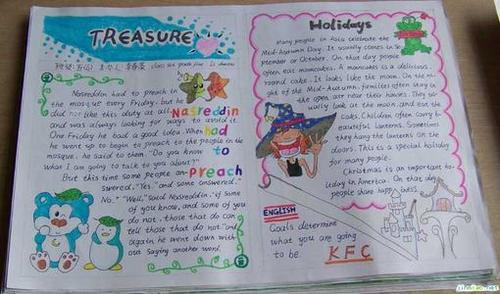 TREASURE
Nasreddin had to preach in
the mosque every Friday, but he
did not like this duty at all
and was always looking for ways to avoid it.
One Friday he had a good idea. When he
went up to begin to preach to the people in the
mosque, he said to them, "Do you know
what I am going to talk to you about?"
But this time some people an-
swered, "Yes," and some answered,
No." "Well," said Nasreddin, "if some
of you know, and some of you
do not, those that do can
tell those that do not" and
again he went down with
out saying another word.
Nasreddin
had
to
preach
Holidays
Many people in Asia celebrate the
Mid-Autumn Day. It usually comes in Se
ptember or October. On that day people
often eat mooncakes. A mooncakes is a delicious
round cake. It looks like the moon. On the ni
ght of the Mid-Autumn, families often stay in
the open air near their houses. They us
ually look at the moon, and eat the
cakes. Children often carry b
eautiful lanterns. Sometimes
they hang the lanterns on the
doors. This is a special holiday
for many people.
Christmas is an important ho
liday in America. On that day
people share happiness.
ENGLISH
Goals determine
what you are going
to be.
KFC